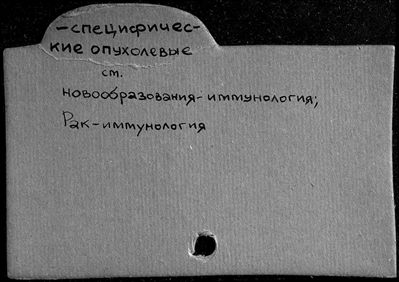 -специфичес-
кие опухолевые
см.
новообразования-иммунология;
Рак-иммунология